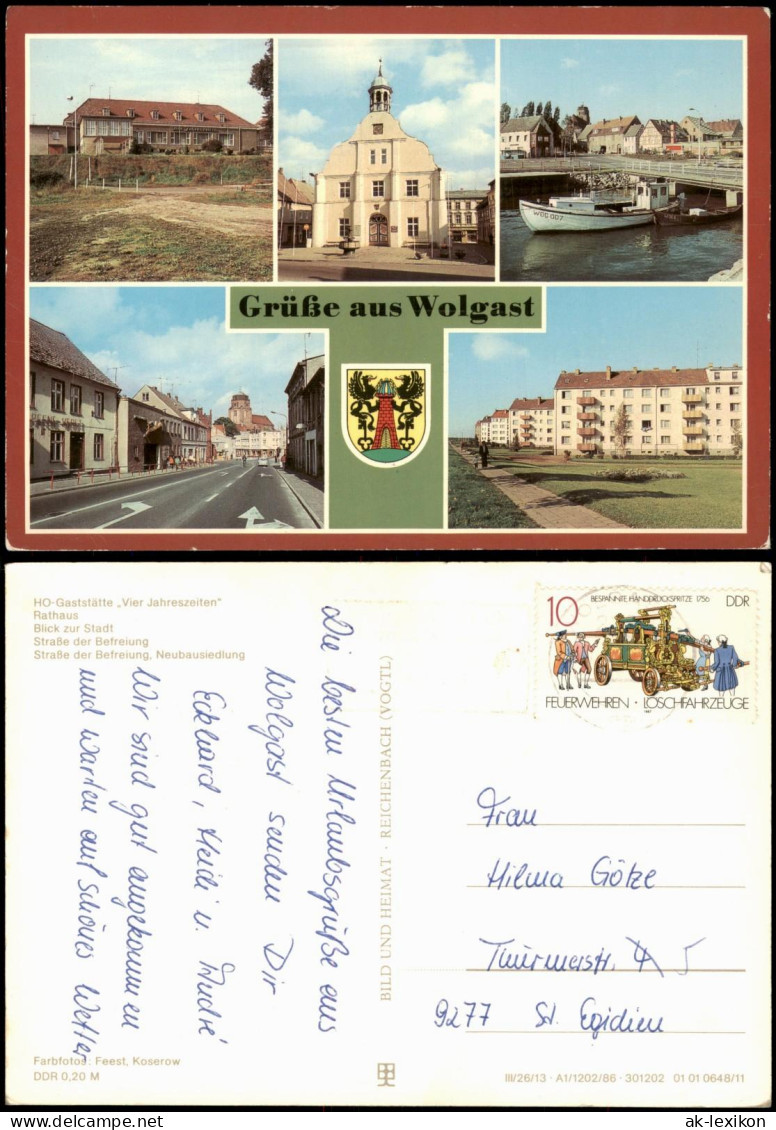 WOG 007
Grüße aus Wolgast
HO-Gaststätte „Vier Jahreszeiten"
Rathaus
Blick zur Stadt
Straße der Befreiung
Straße der Befreiung, Neubausiedlung
Die besten Urlaubsgrüße aus
Wolgast senden Dir
Eckhard, Heidi u. André
Wir sind gut angekommen
und warten auf schönes Wetter
BILD UND HEIMAT · REICHENBACH (VOGTL)
10
BESPANNTE HANDDRUCKSPRITZE 1756
DDR
FEUERWEHREN · LÖSCHFAHRZEUGE
1987
Frau
Hilma Götze
Thürmerstr. 4 5
9277 St. Egidien
Farbfotos: Feest, Koserow
DDR 0,20 M
III/26/13 · A1/1202/86 · 301202 01 01 0648/11
ak-lexikon